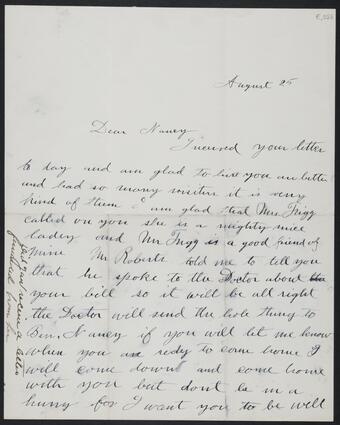 August 25
Dear Nancy
I receved your letter
to day and am glad to hear you are better
and had so many visiters it is very
kind of them I am glad that Mrs Trigg
called on you she is a mighty nice
ladey and Mr Trigg is a good friend of
mine Mr Roberts told me to tell you
that he spoke to the Doctor about
your bill so it will be all right
the Doctor will send the hole thing to
Ben, Nancy if you will let me know
when you are redy to come home I
will come down and come home
with you but dont be in a
hurry for I want you to be well
did you receive a letter
from